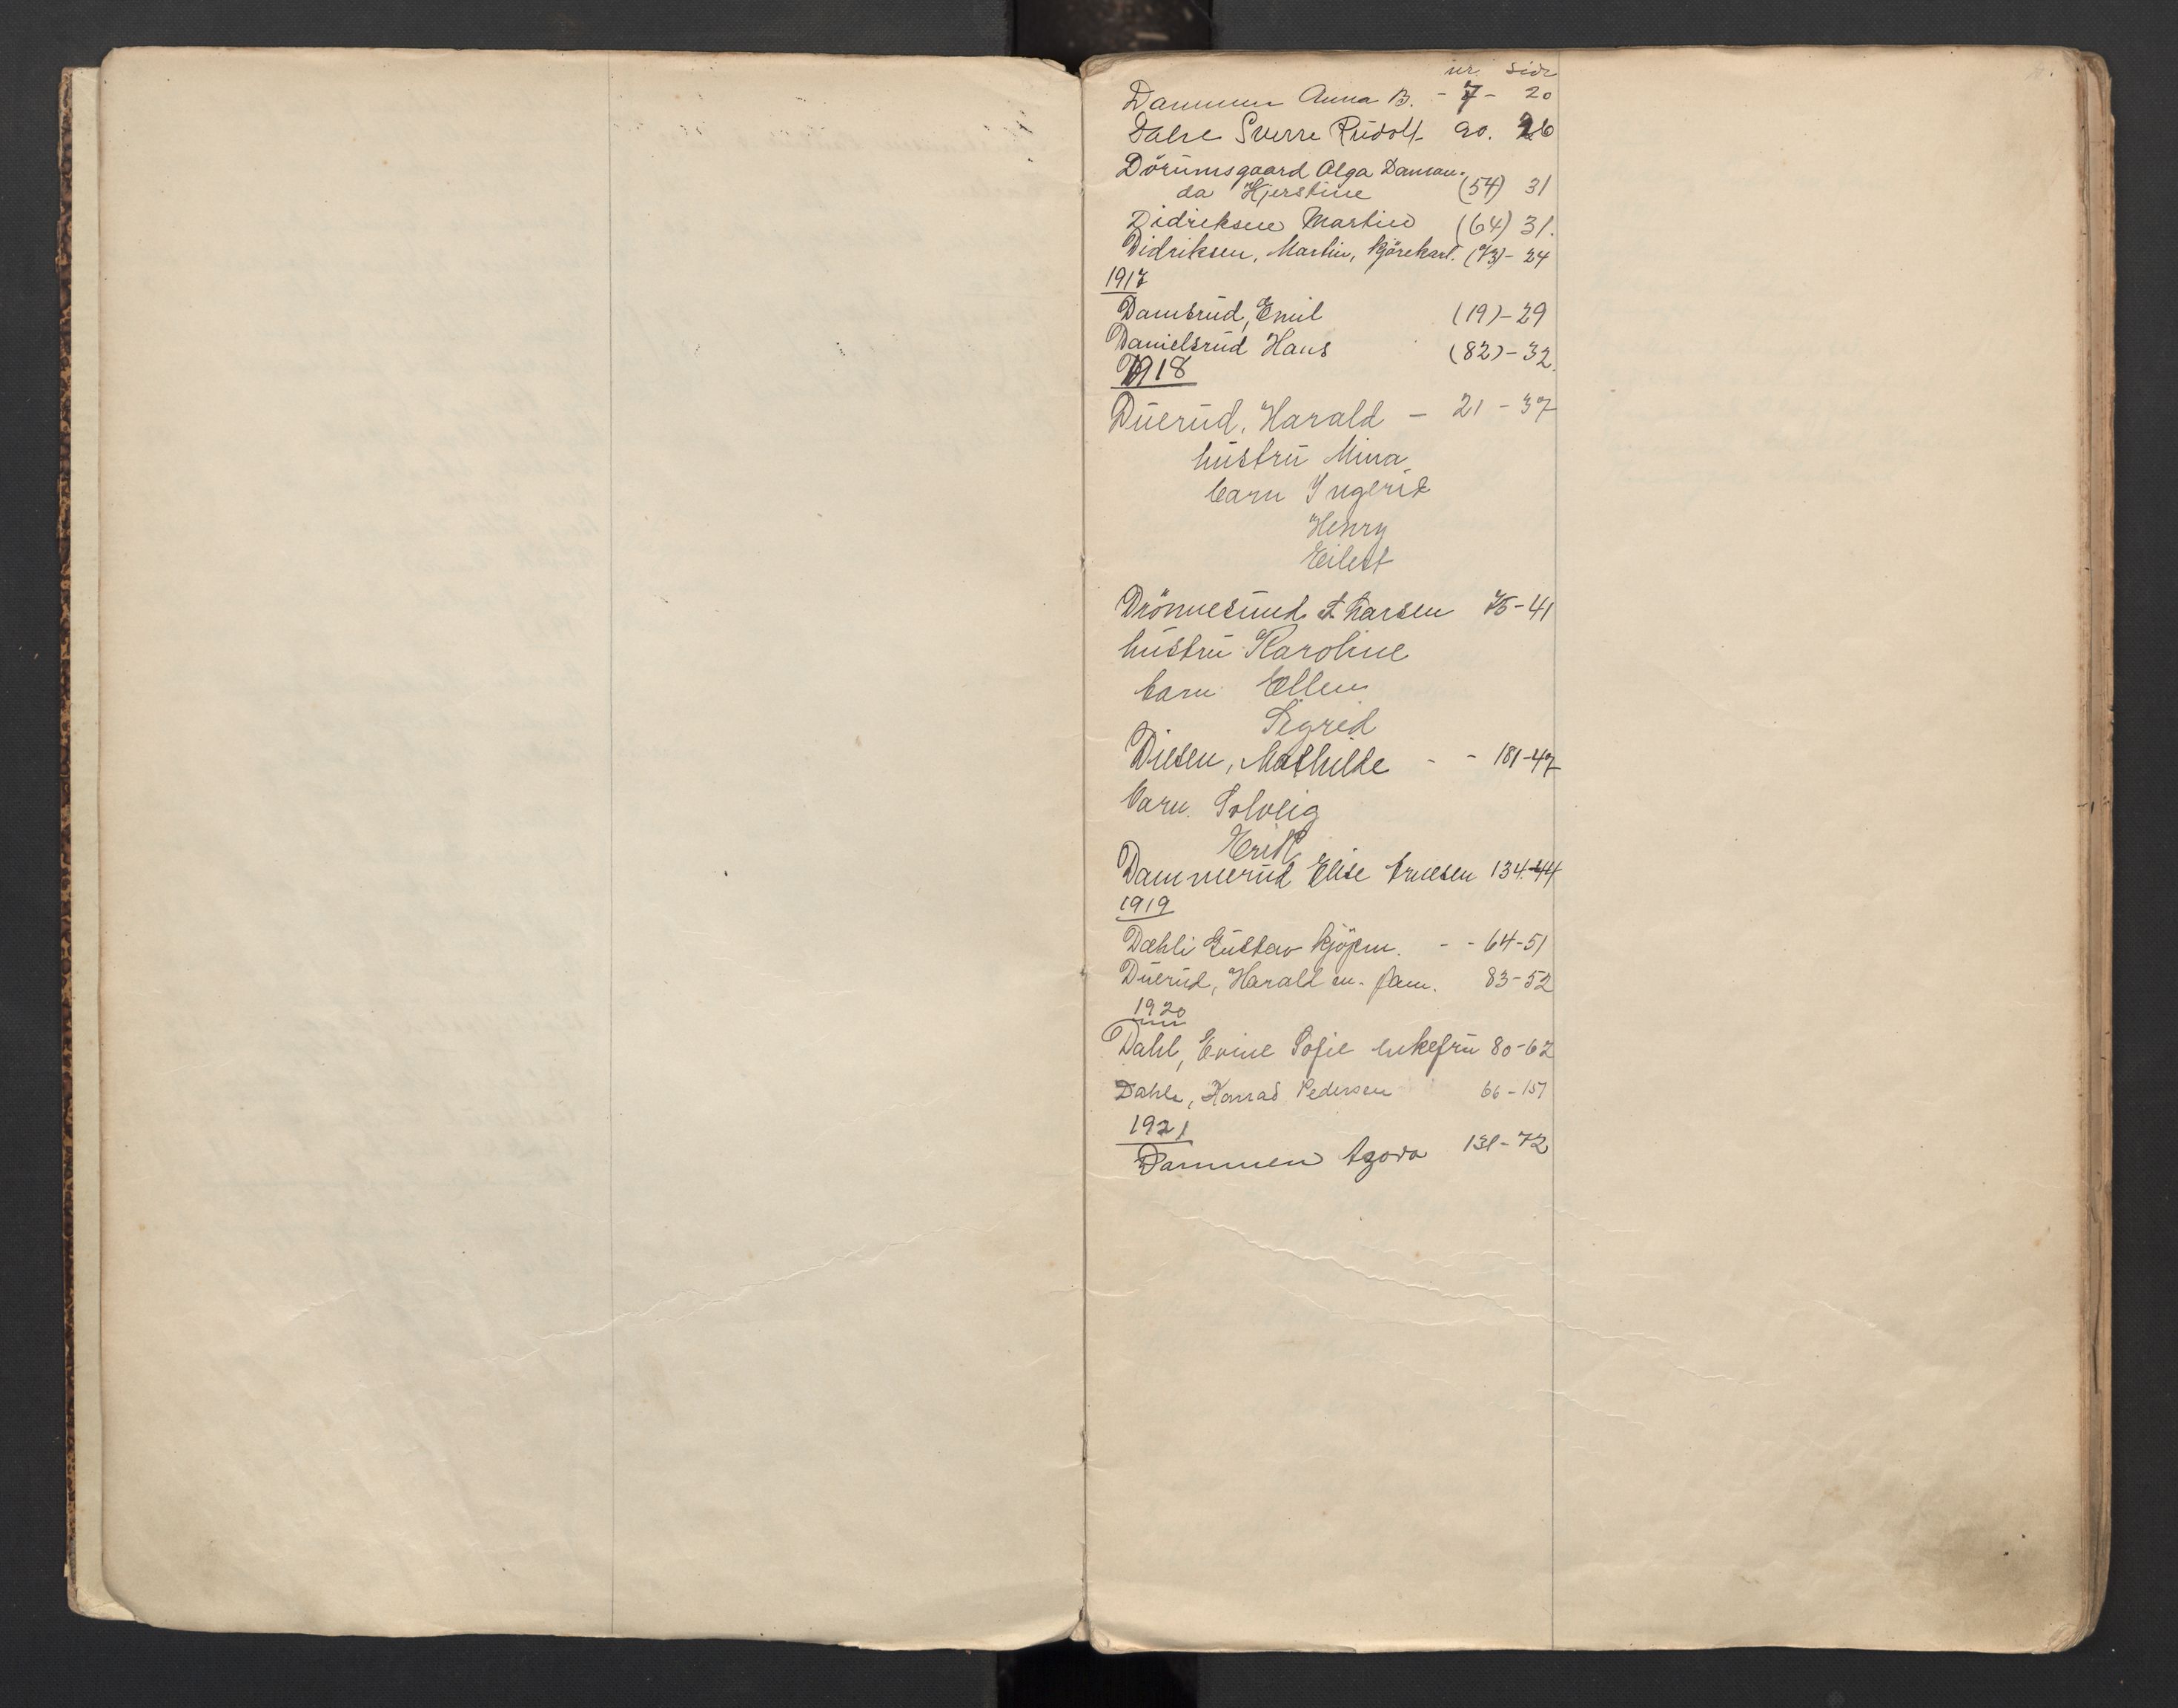 nr. side
Dammen Anna B. - 7 - 20
Dahl Sverre Rudolf 20. 26
Dörumsgaard Olga Daman-
da Hjerstine (54) 31
Didriksen Martin (64) 31.
Didriksen, Martin, kjörekarl. (73) - 24
1917
Dambrud, Emil (19) - 29
Danielsrud Hans (82) - 32.
1918
Duerud, Harald - 21 - 37
hustru Mina
barn Ingerid
Henry
Eilert
Drönnesund Larsen 75 - 41
hustru Karoline
barn Ellen
Sigrid
Diesen, Mathilde - - 181 - 47
barn. Solveig
Erik
Dammerud Elise 134 - 44
1919
Dæhli Gustav kjöpm. - - 64 - 51
Duerud, Harald m. fam. 83 - 52
1920
Dahl, Evine Sofie enkefru 80 - 62
Dahle, Konrad Pedersen 66 - 157
1921
Dammen Agova 131 - 72